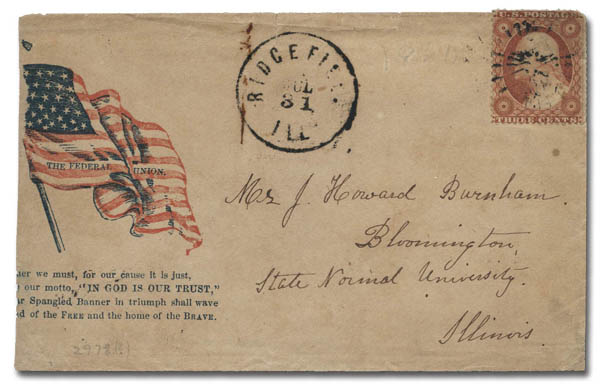 THE FEDERAL UNION.
er we must, for our cause it is just,
our motto, "IN GOD IS OUR TRUST,"
Spangled Banner in triumph shall wave
of the FREE and the home of the BRAVE.
RIDGEFIEL
JUL
31
ILL
U.S. POSTAGE
THREE CENTS
Mr J. Howard Burnham.
Bloomington,
State Normal University.
Illinois.